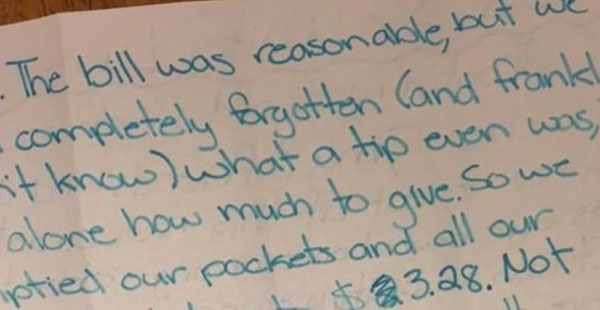 . The bill was reasonable, but we
completely forgotten (and frankl
it know) what a tip even was,
alone how much to give. So we
ptied our pockets and all our
$3.28. Not